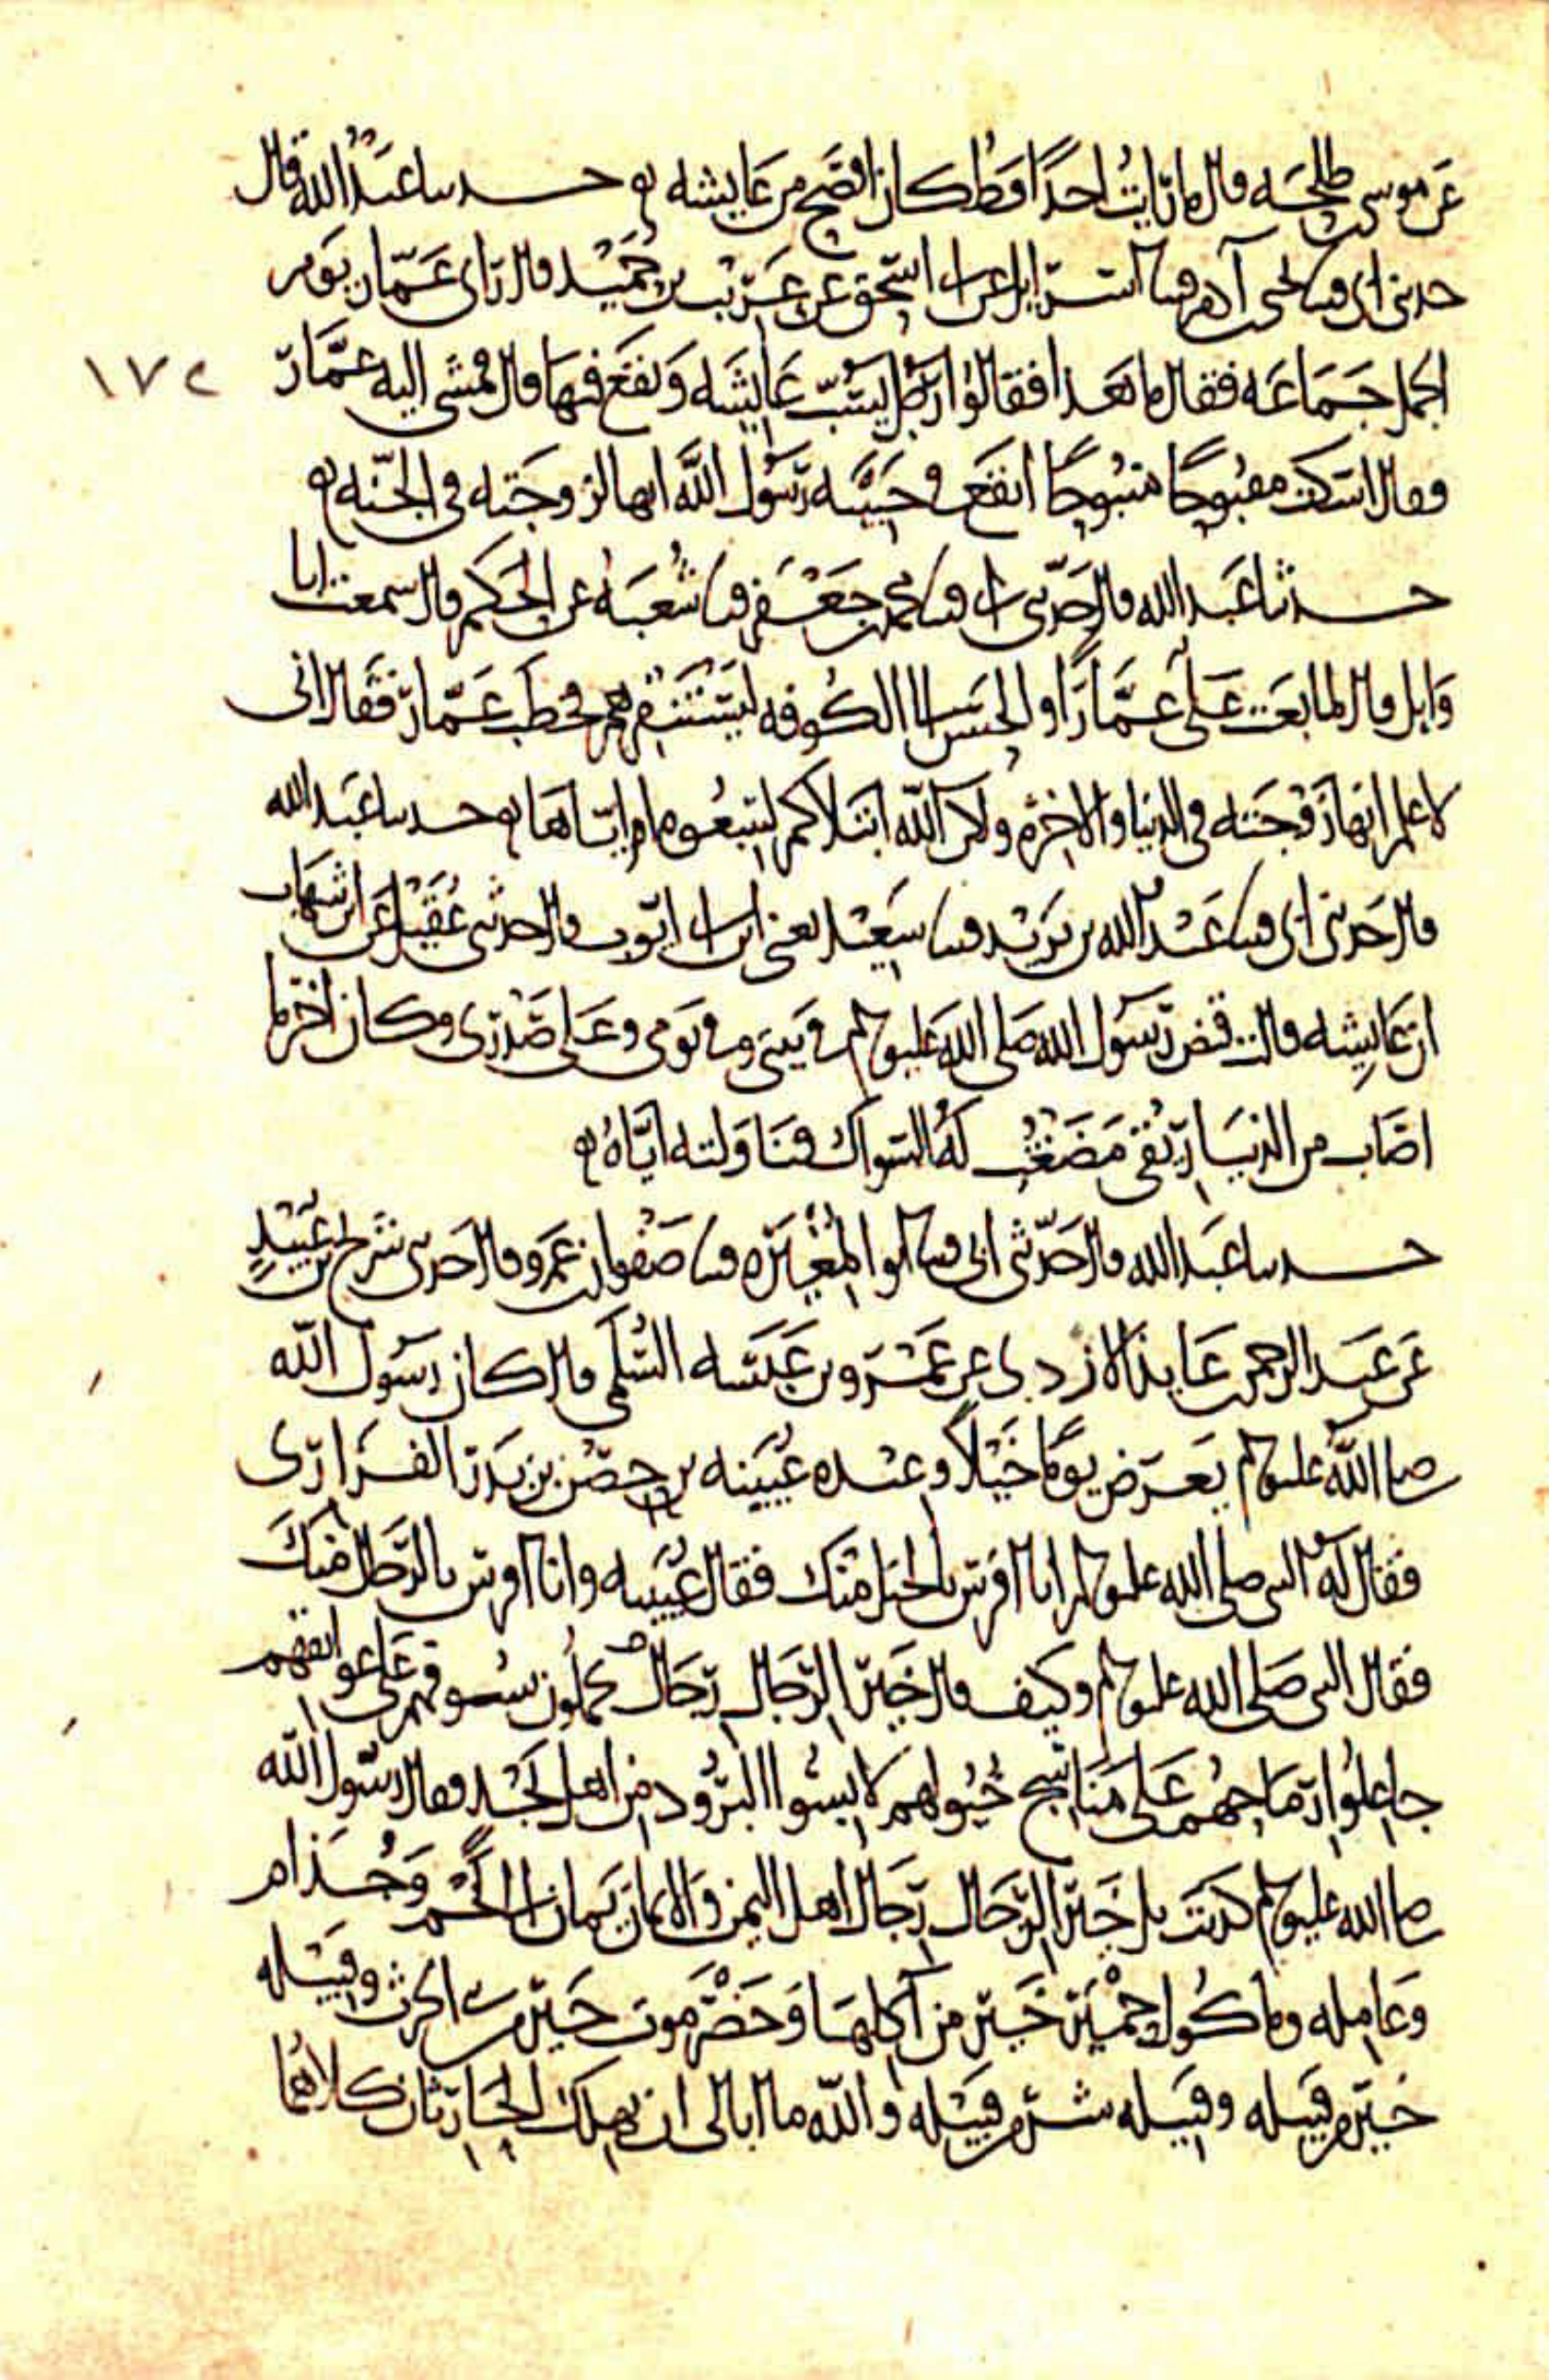 عن موسى بن طلحه قال ما رايت احدًا قط كان افصح من عايشه ه حدثنا عبد الله قال
حدثنى ابى قثنا يحيى بن آدم قثنا اسرايل عن ابى اسحق عن عريب بن حميد قال راى عمار يوم
الجمل جماعه فقال ما هذا فقالوا رجل يسب عايشه ويقع فيها قال فمشى اليه عمار
١٧٤
وقال اسكت مقبوحًا منبوحًا اتقع فى حبيبه رسول الله انها لزوجته فى الجنه ه
حدثنا عبد الله قال حدثنى ابى قثنا محمد بن جعفر قثنا شعبه عن الحكم قال سمعت ابا
وايل قال لما بعث على عمارًا والحسن الى الكوفه ليستنفرهم فخطب عمار فقال انى
لاعلم انها زوجته فى الدنيا والاخره ولكن الله ابتلاكم لتتبعوه او اياها ه حدثنا عبد الله
قال حدثنى ابى قثنا عبد الله بن يزيد قثنا سعيد يعنى ابن ابى ايوب قال حدثنى عقيل عن ابن شهاب
ان عايشه قالت قبض رسول الله صلى الله عليه وسلم فى بيتى وفى يومى وعلى صدرى وكان اخر ما
اصاب من الدنيا ريقى مضغت له السواك فناولته اياه ه
حدثنا عبد الله قال حدثنى ابى قثنا ابو المغيره قثنا صفوان بن عمرو قال حدثنى شريح بن عبيد
عن عبد الرحمن بن عايذ الازدى عن عمرو بن عبسه السلمى قال كان رسول الله
صلى الله عليه وسلم يعرض يومًا خيلًا وعنده عيينه بن حصن بن بدر الفزارى
فقال له النبى صلى الله عليه وسلم انا افرس بالخيل منك فقال عيينه وانا افرس بالرجال منك
فقال النبى صلى الله عليه وسلم وكيف قال خير الرجال رجال يحملون سيوفهم على عواتقهم
جاعلوا رماحهم على مناسج خيولهم لابسوا البرود من اهل نجد فقال رسول الله
صلى الله عليه وسلم كذبت بل خير الرجال رجال اهل اليمن والايمان يمان الى لخم وجذام
وعامله وماكول حمير خير من آكلها وحضرموت خير من بنى الحرث وقبيله
خير من قبيله وقبيله شر من قبيله والله ما ابالى ان يهلك الحارثان كلاهما